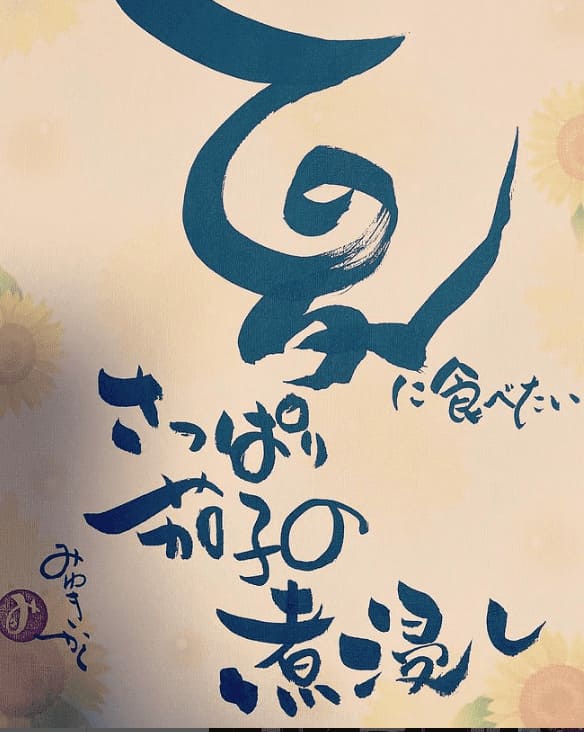 夏
に食べたい
さっぱり
茄子の
煮浸し
みゆき
み